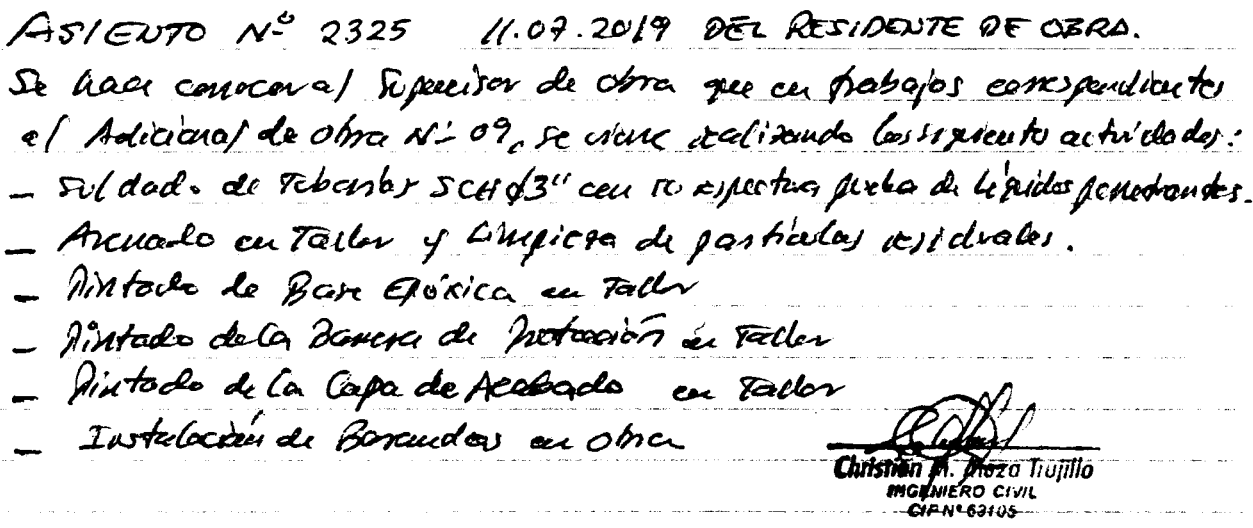 ASIENTO Nº 2325 11.07.2019 DEL RESIDENTE DE OBRA.
Se hace conocer al Supervisor de obra que en trabajos correspondientes
al Adicional de obra Nº 09, se viene realizando las siguientes actividades:
- Soldado de Tuberías SCH ϕ3" con su respectiva prueba de líquidos penetrantes.
- Arenado en Taller y Limpieza de partículas residuales.
- Pintado de Base Epóxica en Taller
- Pintado de la Barrera de Protección en Taller
- Pintado de la Capa de Acabado en Taller
- Instalación de Barandas en obra
Christian M. Trujillo
INGENIERO CIVIL
CIP Nº 63105